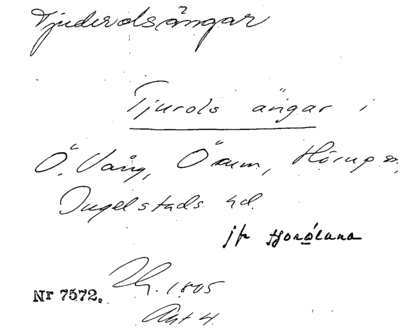 Tjuderdsängar
Tjurols ängar i
Ö. Vång, Örum, Hörup sn,
Ingelstads hd.
jfr
Nr 7572. Lh. 1805
Akt 4.